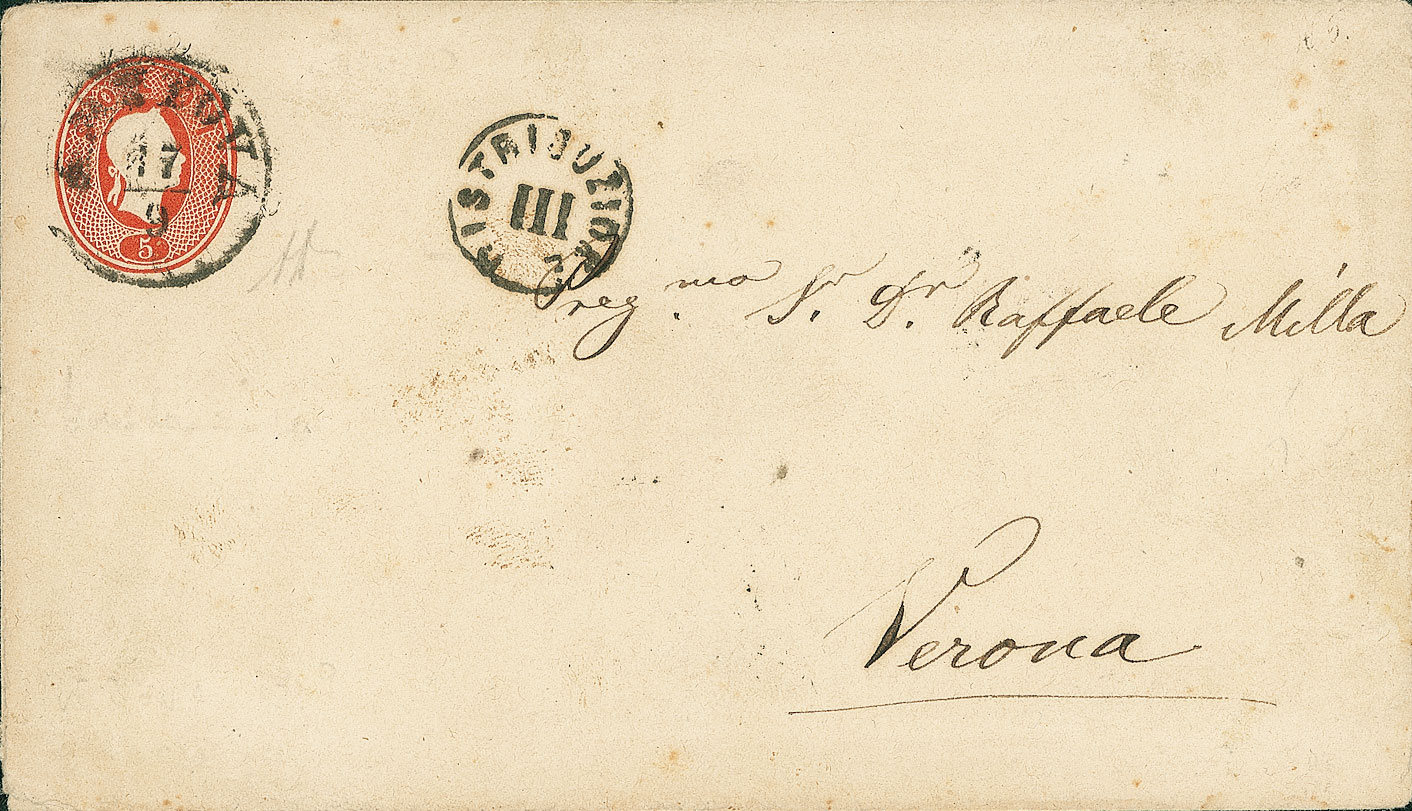 MANTOVA
17
9
5
DISTRIBUZIONE
III
Preg.mo S.r D.r Raffaele Milla
Verona